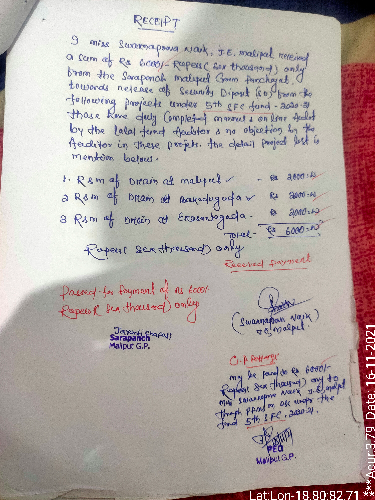 RECEIPT
I miss Swarnaprava Naik, J.E. maliput received
a sum of Rs 6000/- Rupees (Six thousand) only
from the Sarapanch maliput Gram Panchayat,
towards release of Security Diposit (SD) from the
following projects under 5th SFC fund - 2020-21
those have duly completed manner & on line Audit
by the Local fund Auditor & no objection by the
Auditor in these projects. the detail project list is
mention below.
1. R&M of Drain at maliput - Rs 2000=00
2 R&M of Drain at - Rs 2000=00
3 R&M of Drain at - Rs 2000=00
Total- Rs 6000=00
Rupees (Six thousand) only
Received Payment
Passed for payment of Rs 6000/-
Rupees (Six thousand) only
(Swarnaprava Naik)
maliput
Sarapanch
Maliput G.P.
may be paid to Rs 6000/-
Rupees (Six thousand) only to
Miss Swarnaprava Naik J.E, maliput
through PPA on a/c under the
fund 5th SFC, 2020-21.
PEO
Maliput G.P.
***Acur:3.79 Date:16-11-2021
Lat Lon-18.80:82.71